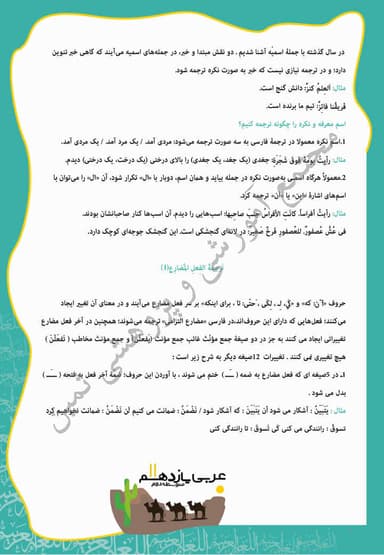 در سال گذشته با جملهٔ اسمیّه آشنا شدیم . دو نقش مبتدا و خبر، در جمله‌های اسمیه می‌آیند که گاهی خبر تنوین
دارد؛ و در ترجمه نیازی نیست که خبر به صورت نکره ترجمه شود.
مثال: اَلعِلمُ کنزٌ: دانش گنج است.
فَریقُنا فائِزٌ: تیم ما برنده است.
اسم معرفه و نکره را چگونه ترجمه کنیم؟
1.اسم نکره معمولا در ترجمهٔ فارسی به سه صورت ترجمه می‌شود: مردی آمد. / یک مرد آمد. / یک مردی آمد.
مثال: رأیتُ بومَةً فَوقَ شَجَرَةٍ: جغدی (یک جغد، یک جغدی) را بالای درختی (یک درخت، یک درختی) دیدم.
2.معمولاً هرگاه اسمی به‌صورت نکره در جمله بیاید و همان اسم، دوبار با «ال» تکرار شود، آن «ال» را می‌توان با
اسم‌های اشارهٔ «این» یا «آن» ترجمه کرد.
مثال: رأیتُ أفراساً. کانَتِ الأفراسُ جَنبَ صاحِبِها: اسب‌هایی را دیدم. آن اسب‌ها کنار صاحبانشان بودند.
فی عُشٍّ عُصفورٌ. لِلعُصفورِ فَرخٌ صَغیرٌ: در لانه‌ای گنجشکی است. این گنجشک جوجه‌ای کوچک دارد.
ترجمة الفعل المُضارِع(1)
حروف «أَن: که» و «کَی، لِـ ، لِکَی ، حَتّی: تا ، برای اینکه» بر سر فعل مضارع می‌آیند و در معنای آن تغییر ایجاد
می‌کنند؛ فعل‌هایی که دارای این حروف‌اند،در فارسی «مضارع التزامی» ترجمه می‌شوند؛ همچنین در آخر فعل مضارع
تغییراتی ایجاد می کنند به جز در دو صیغهٔ جمع مؤنّث غائب جمع مؤنث (یَفعَلنَ) و جمع مؤنث مخاطب ( تَفعَلنَ )
هیچ تغییری نمی کنند . تغییرات 12صیغه دیگر به شرح زیر است :
1ـ در 5صیغه ای که فعل مضارع به ضمه ( ـُـ ) ختم می شوند ، با آوردن این حروف؛ ضمهٔ آخر فعل به فتحه ( ـَـ )
بدل می شود .
مثال : یَتَبَیَّنُ : آشکار می شود أن یَتَبَیَّنَ : که آشکار شود / نَضْمَنُ : ضمانت می کنیم لَن نَضْمَنَ : ضمانت نخواهیم کرد
تسوقُ : رانندگی می کنی کَی تَسوقَ : تا رانندگی کنی
عربی یازدهم